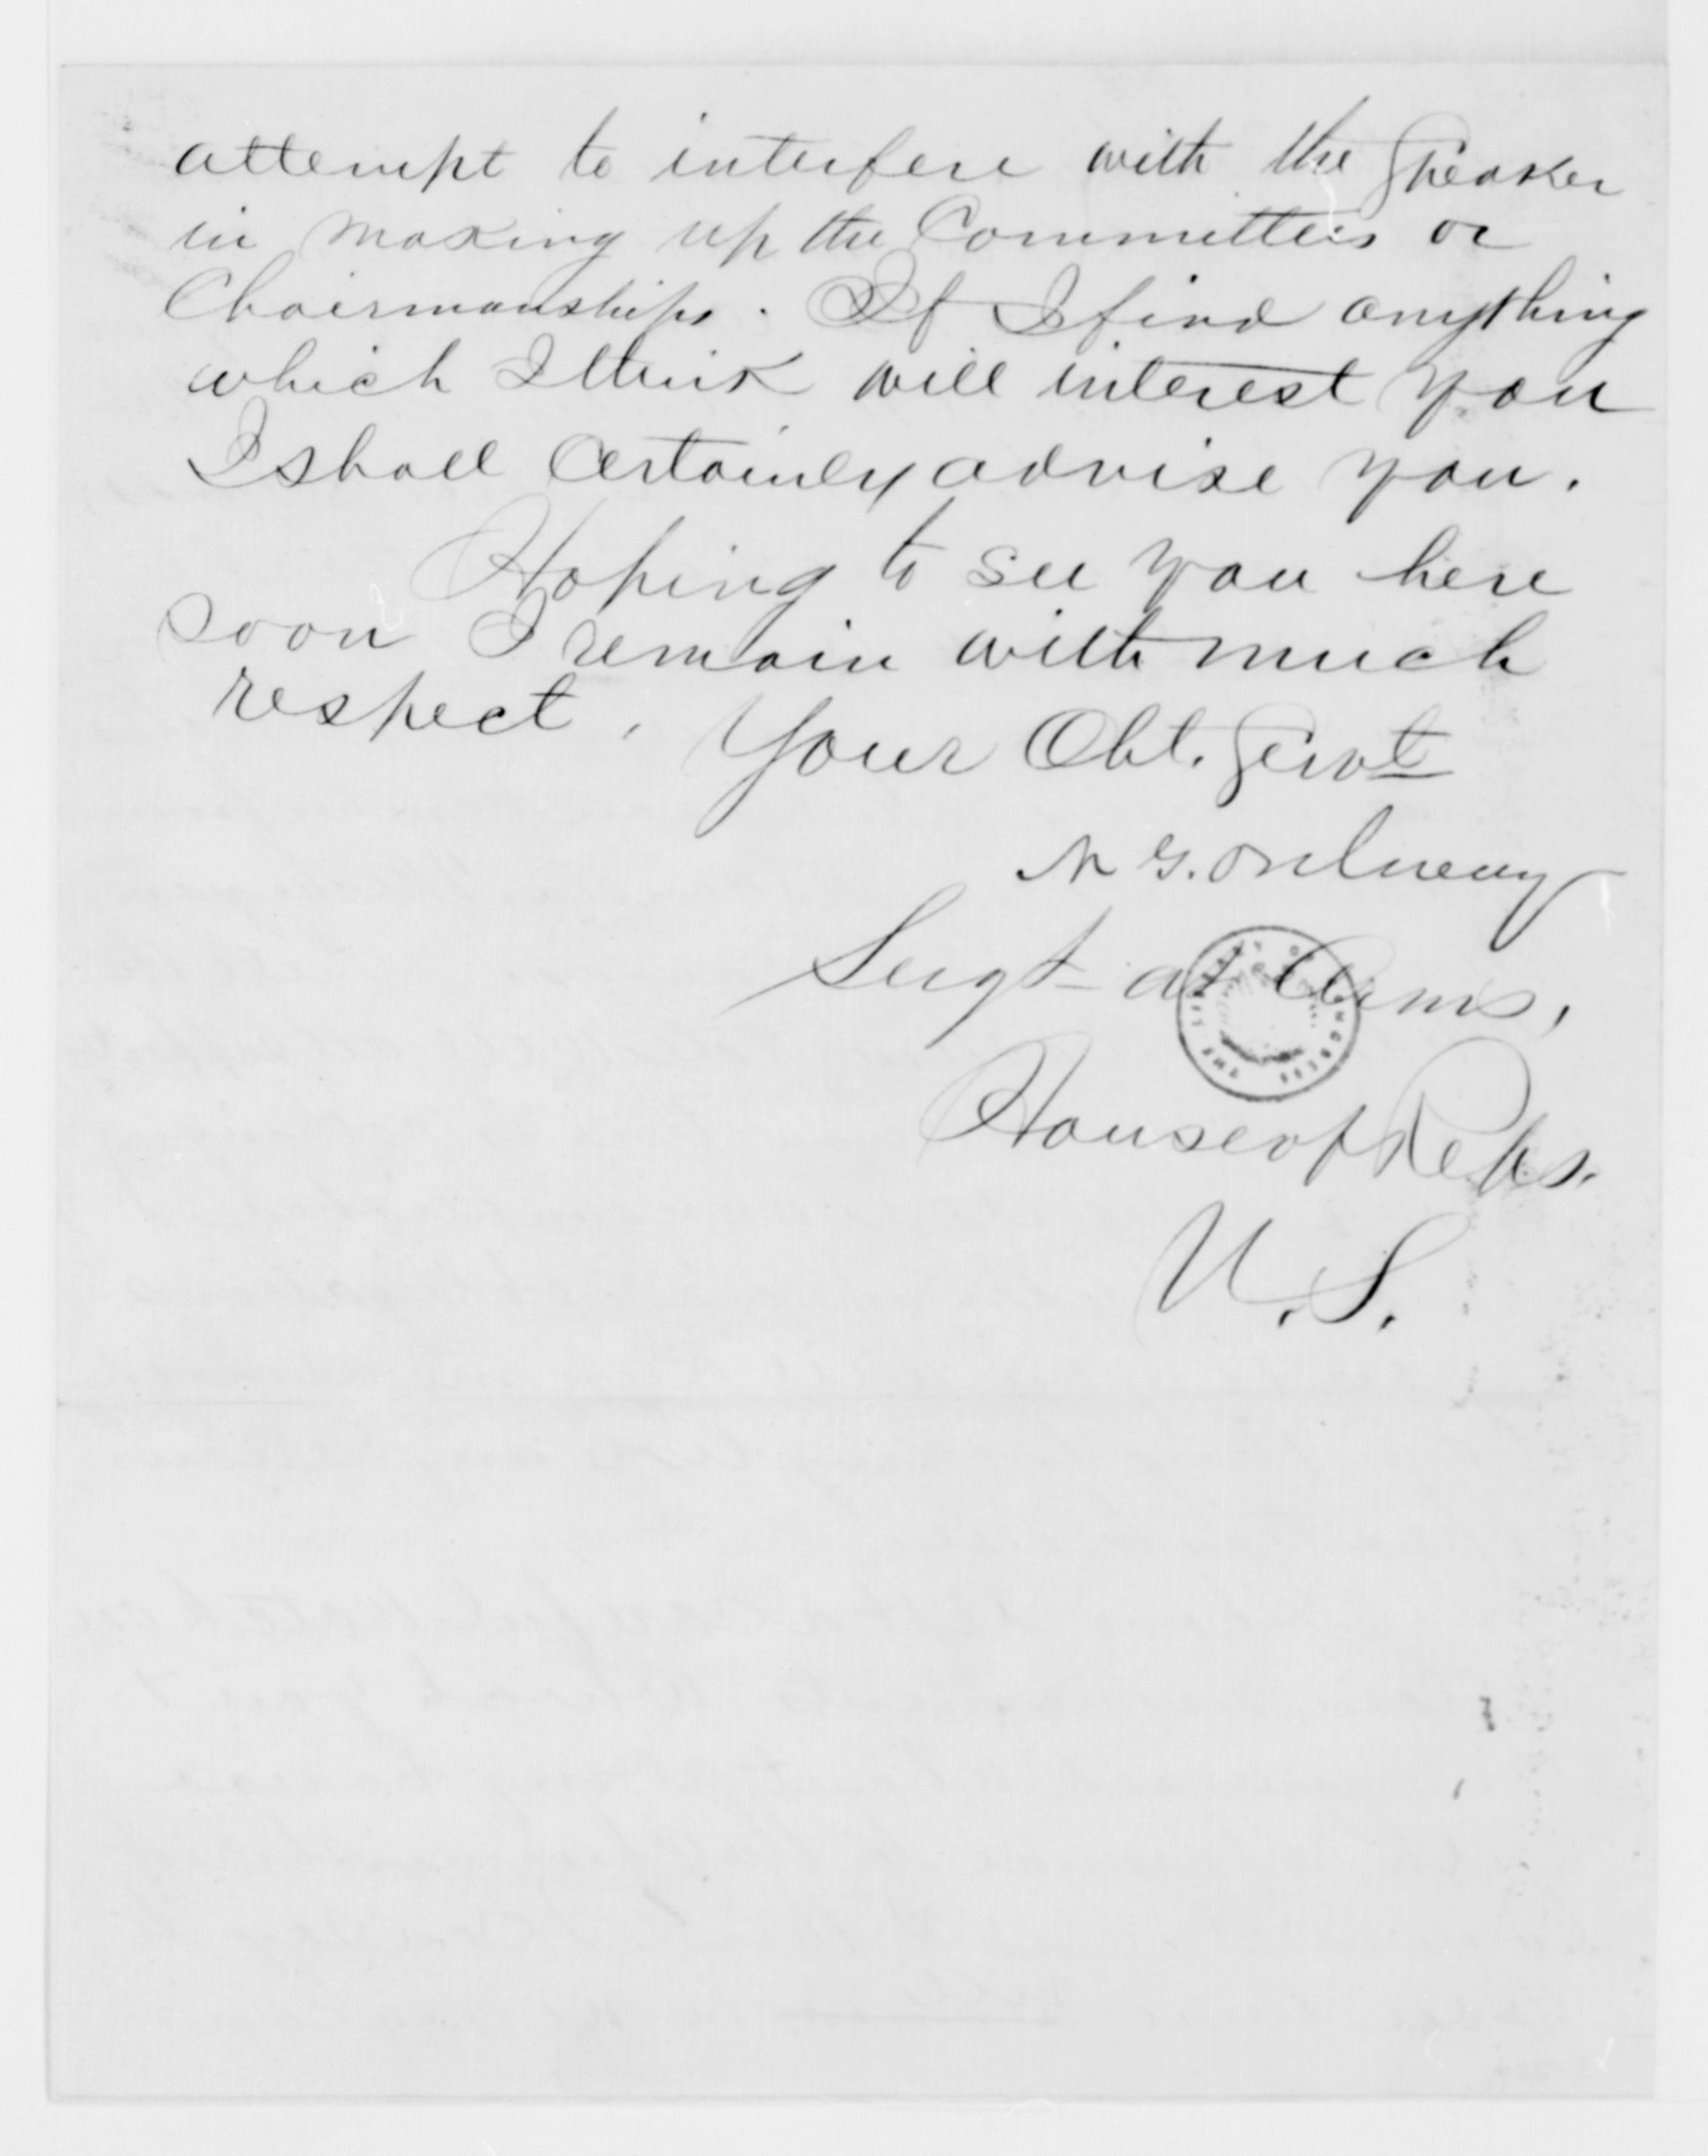 attempt to interfere with the Speaker
in making up the Committees or
Chairmanships. If I find anything
which I think will interest you
I shall certainly advise you.
Hoping to see you here
soon I remain with much
respect, Your Obt. Servt
N G. Ordway
Sergt at Arms,
House of Reps.
U.S.
THE LIBRARY OF CONGRESS